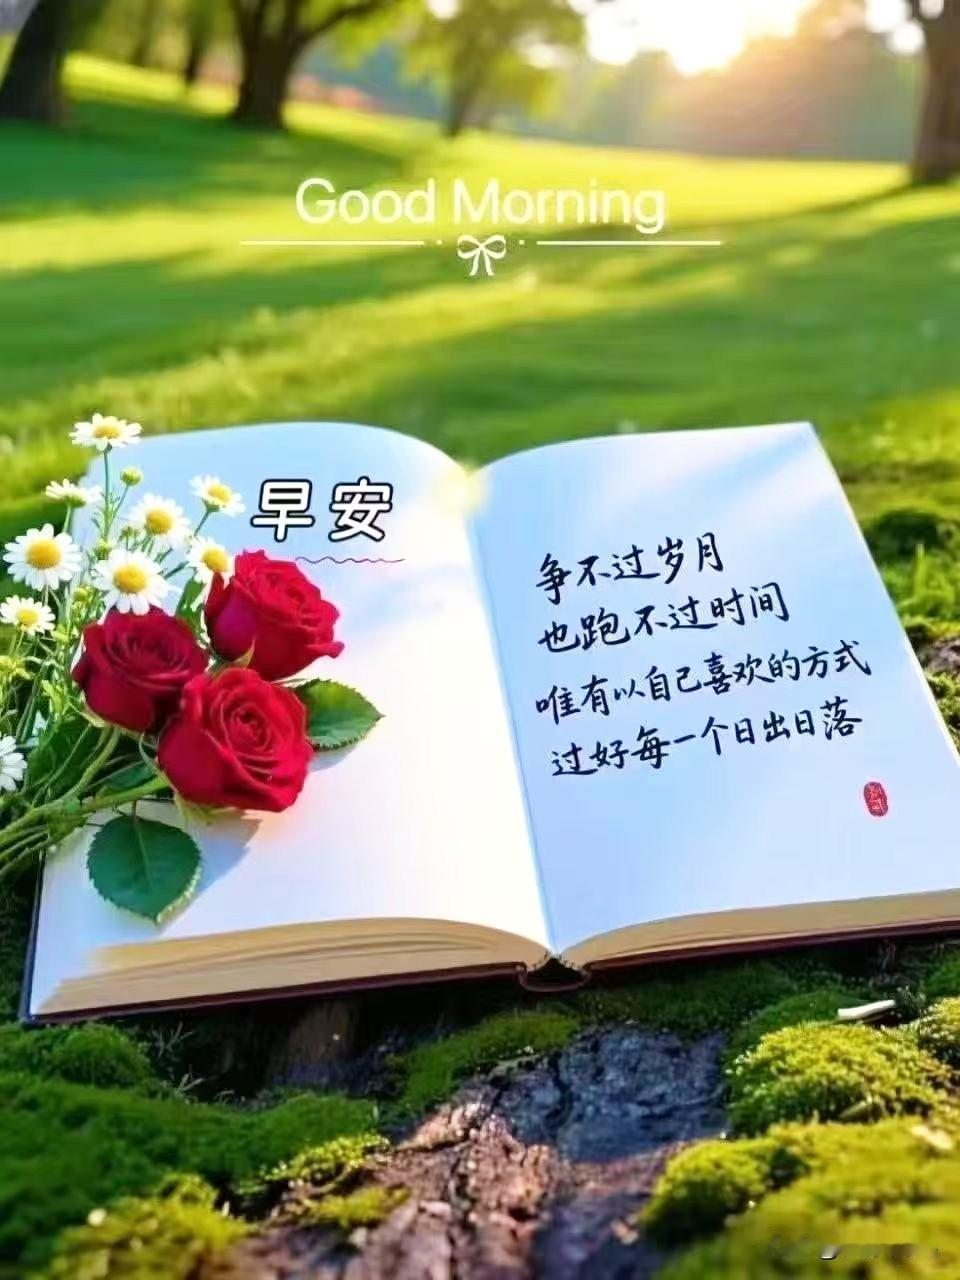 Good Morning
早安
争不过岁月
也跑不过时间
唯有以自己喜欢的方式
过好每一个日出日落